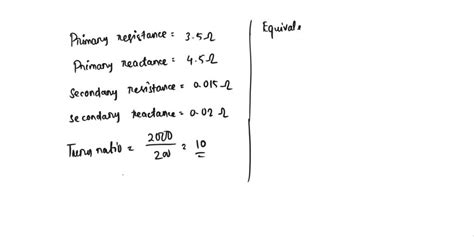 Primary resistance = 3.5 Ω
Primary reactance = 4.5 Ω
Secondary resistance = 0.015 Ω
secondary reactance = 0.02 Ω
Turns ratio = 2000 / 200 = 10
Equivale